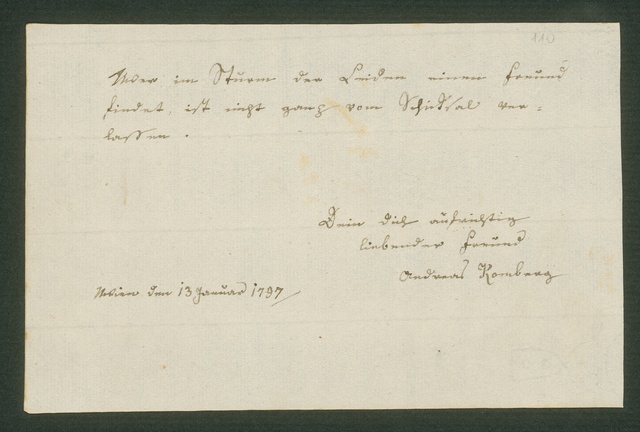 110
Wer im Sturm der Leiden einen Freund
findet, ist nicht ganz vom Schicksal ver=
lassen.
Dein dich aufrichtig
liebender Freund
Andreas Romberg
Wien den 13 Januar 1797